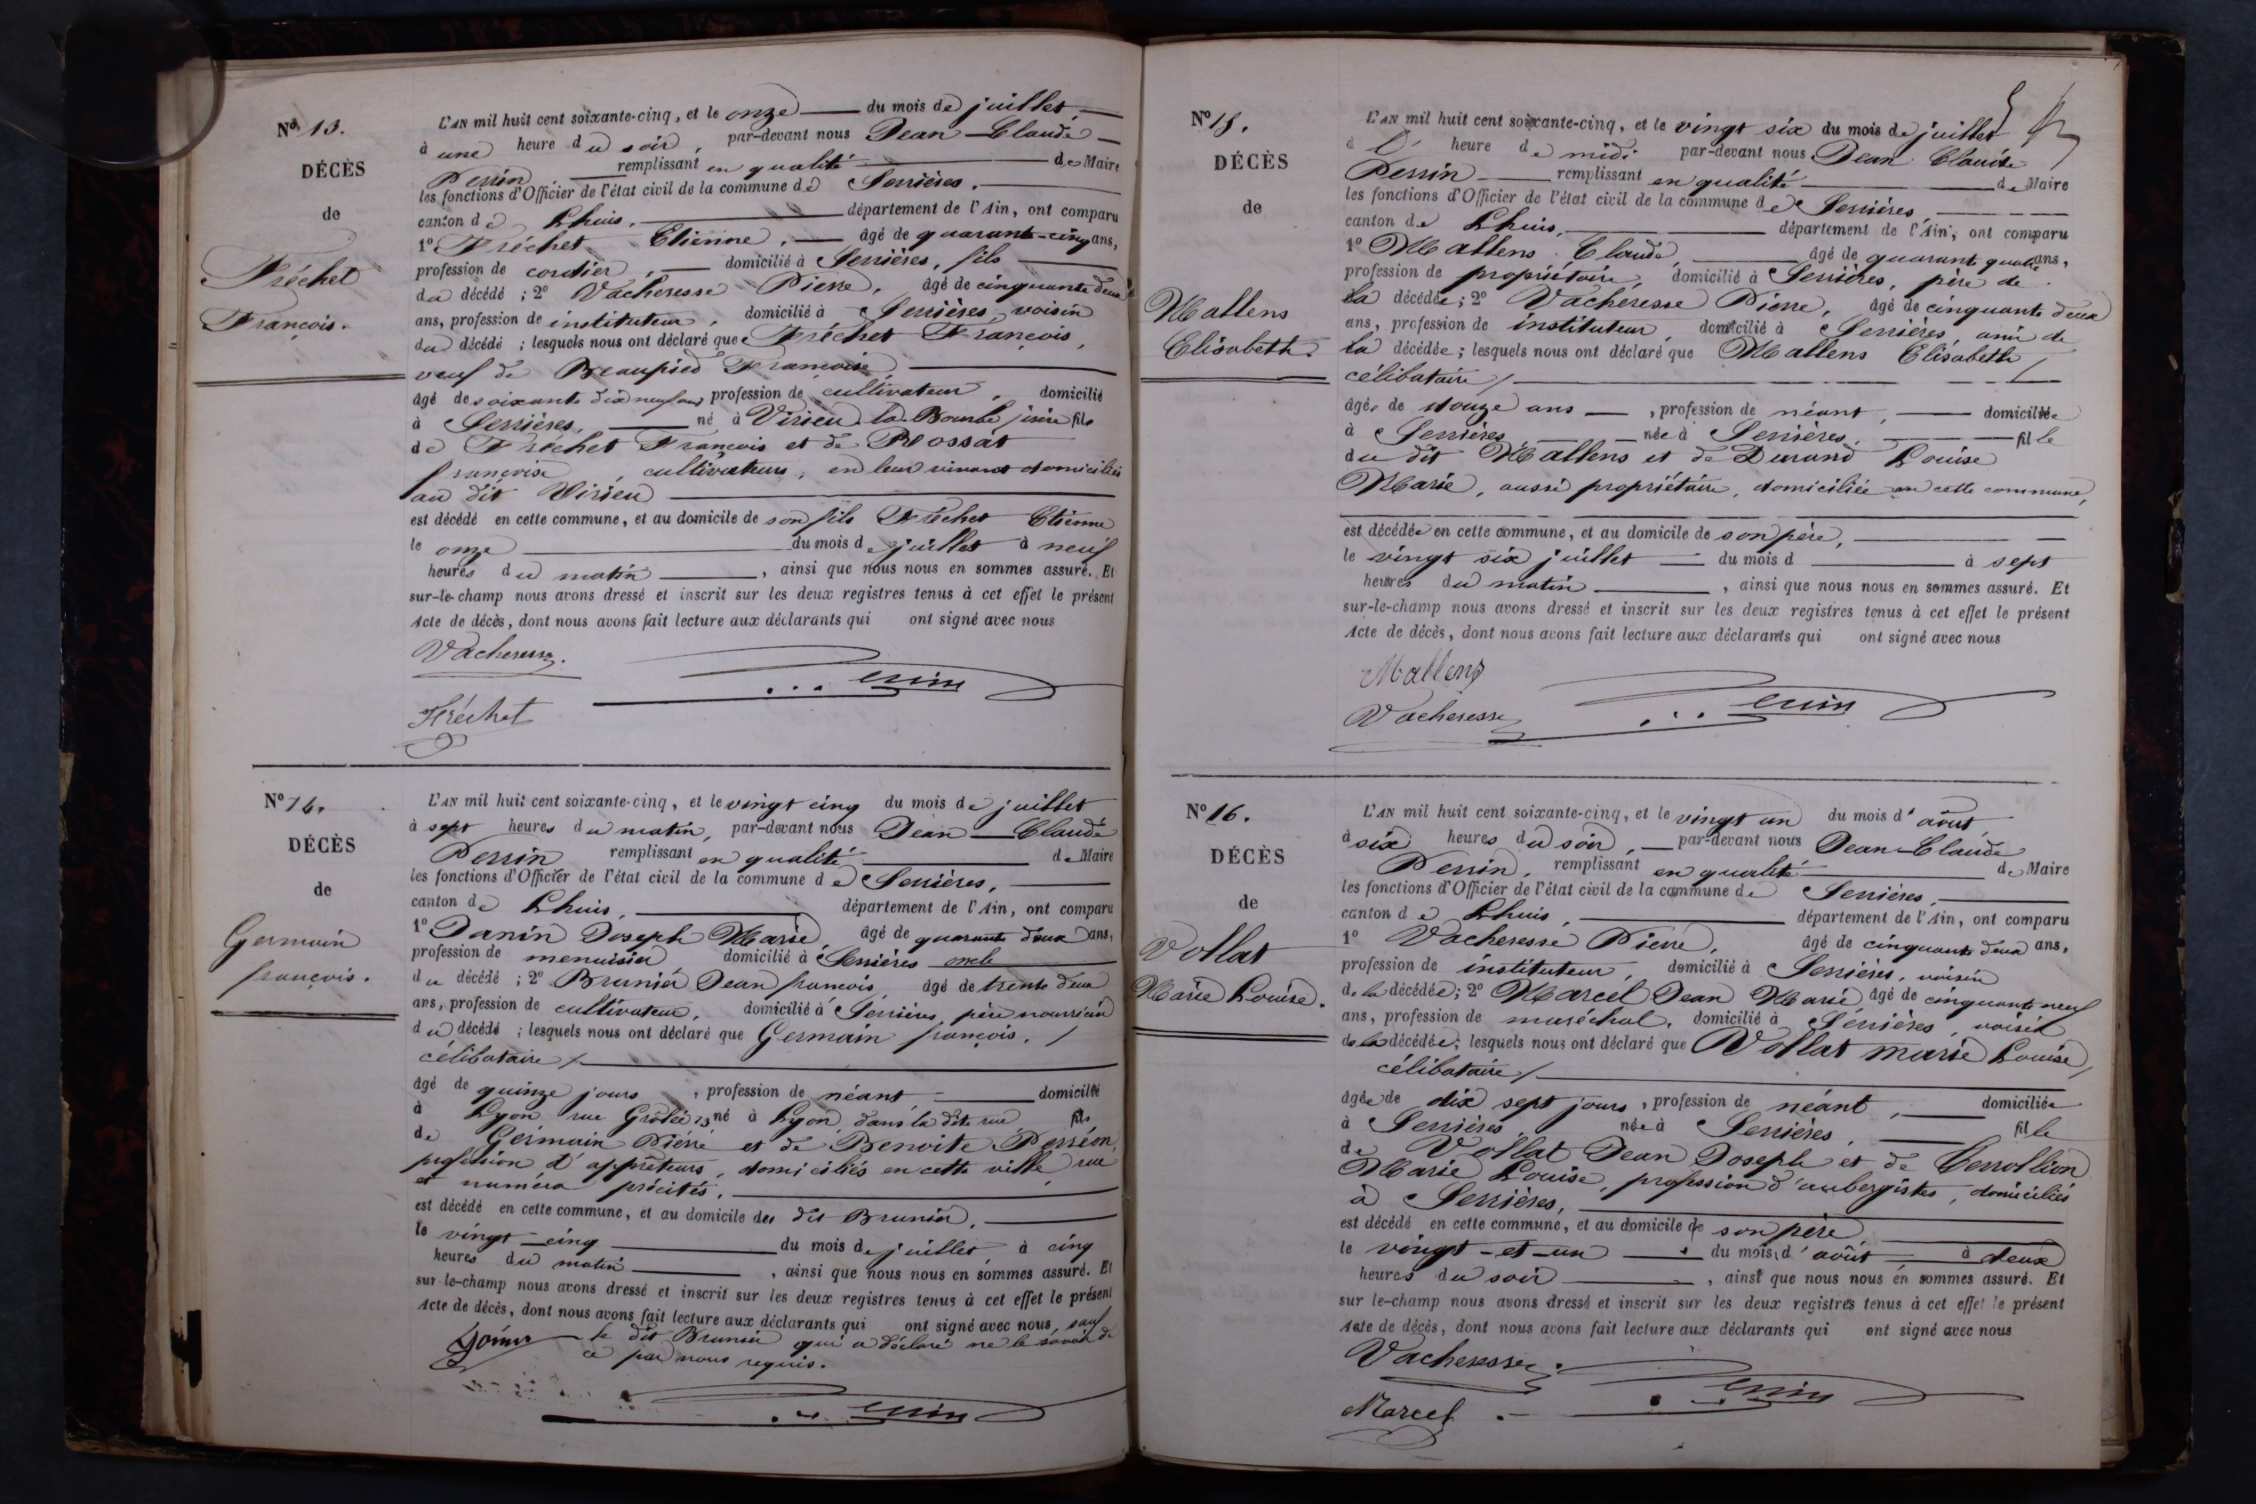 Nº 13.
DÉCÈS
de
Fréchet
François.
L'AN mil huit cent soixante-cinq, et le onze du mois de juillet
à une heure du soir, par-devant nous Jean-Claude
Perrin remplissant en qualité de Maire
les fonctions d'Officier de l'état civil de la commune de Serrières,
canton de Lhuis, département de l'Ain, ont comparu
1º Fréchet Etienne, âgé de quarante-cinq ans,
profession de cordier, domicilié à Serrières, fils
du décédé ; 2º Vacheresse Pierre, âgé de cinquante deux
ans, profession de instituteur, domicilié à Serrières, voisin
du décédé ; lesquels nous ont déclaré que Fréchet François,
veuf de Beaupied Françoise
âgé de soixante dix neuf ans profession de cultivateur, domicilié
à Serrières, né à Virieu la Bourbe, isère fils
de Fréchet François et de Rossat
françoise, cultivateurs, en leur vivant domiciliés
au dit Virieu
est décédé en cette commune, et au domicile de son fils Fréchet Etienne
le onze du mois de juillet à neuf
heures du matin, ainsi que nous nous en sommes assuré. Et
sur-le-champ nous avons dressé et inscrit sur les deux registres tenus à cet effet le présent
Acte de décès, dont nous avons fait lecture aux déclarants qui ont signé avec nous
Vacheresse.
Perrin
Fréchet
Nº 14.
DÉCÈS
de
Germain
françois.
L'AN mil huit cent soixante-cinq, et le vingt cinq du mois de juillet
à sept heures du matin, par-devant nous Jean-Claude
Perrin remplissant en qualité de Maire
les fonctions d'Officier de l'état civil de la commune de Serrières,
canton de Lhuis, département de l'Ain, ont comparu
1º Janin Joseph Marie, âgé de quarante deux ans,
profession de menuisier domicilié à Serrières oncle
du décédé ; 2º Brunier Jean françois, âgé de trente deux
ans, profession de cultivateur, domicilié à Serrières, père nourricier
du décédé ; lesquels nous ont déclaré que Germain françois,
célibataire
âgé de quinze jours, profession de néant, domicilié
à Lyon rue Grôlée 13 né à Lyon, dans la dite rue fils
de Germain Pierre et de Benoite Perréon,
profession d'apprêteurs, domiciliés en cette ville, rue
et numéro précités,
est décédé en cette commune, et au domicile des dit Brunier,
le vingt-cinq du mois de juillet à cinq
heures du matin, ainsi que nous nous en sommes assuré. Et
sur-le-champ nous avons dressé et inscrit sur les deux registres tenus à cet effet le présent
Acte de décès, dont nous avons fait lecture aux déclarants qui ont signé avec nous, sauf
le dit Brunier qui a déclaré ne le savoir de
ce par nous requis.
Perrin
Nº 15.
DÉCÈS
de
Mallens
Elisabeth.
L'AN mil huit cent soixante-cinq, et le vingt six du mois de juillet
à l' heure de midi par-devant nous Jean Claude
Perrin remplissant en qualité de Maire
les fonctions d'Officier de l'état civil de la commune de Serrières,
canton de Lhuis, département de l'Ain, ont comparu
1º Mallens Claude, âgé de quarante quatre ans,
profession de propriétaire, domicilié à Serrières, père de
la décédée ; 2º Vacheresse Pierre, âgé de cinquante deux
ans, profession de instituteur domicilié à Serrières, ami de
la décédée ; lesquels nous ont déclaré que Mallens Elisabeth
célibataire
âgée de douze ans, profession de néant, domiciliée
à Serrières née à Serrières, fille
du dit Mallens et de Durand Louise
Marie, aussi propriétaire, domiciliée en cette commune,
est décédée en cette commune, et au domicile de son père,
le vingt six juillet du mois d à sept
heures du matin, ainsi que nous nous en sommes assuré. Et
sur-le-champ nous avons dressé et inscrit sur les deux registres tenus à cet effet le présent
Acte de décès, dont nous avons fait lecture aux déclarants qui ont signé avec nous
Mallens
Vacheresse
Perrin
Nº 16.
DÉCÈS
de
Vollat
Marie Louise.
L'AN mil huit cent soixante-cinq, et le vingt un du mois d'août
à six heures du soir, par-devant nous Jean-Claude
Perrin, remplissant en qualité de Maire
les fonctions d'Officier de l'état civil de la commune de Serrières,
canton de Lhuis, département de l'Ain, ont comparu
1º Vacheresse Pierre, âgé de cinquante deux ans,
profession de instituteur, domicilié à Serrières, voisin
de la décédée ; 2º Marcel Jean Marie âgé de cinquante neuf
ans, profession de maréchal, domicilié à Serrières, voisin
de la décédée ; lesquels nous ont déclaré que Vollat Marie Louise,
célibataire
âgée de dix sept jours, profession de néant, domiciliée
à Serrières née à Serrières, fille
de Vollat Jean Joseph et de Cerrollion
Marie Louise, profession d'aubergistes, domiciliés
à Serrières,
est décédé en cette commune, et au domicile de son père
le vingt-et-un du mois d'août à deux
heures du soir, ainsi que nous nous en sommes assuré. Et
sur le-champ nous avons dressé et inscrit sur les deux registres tenus à cet effet le présent
Acte de décès, dont nous avons fait lecture aux déclarants qui ont signé avec nous
Vacheresse
Perrin
Marcel